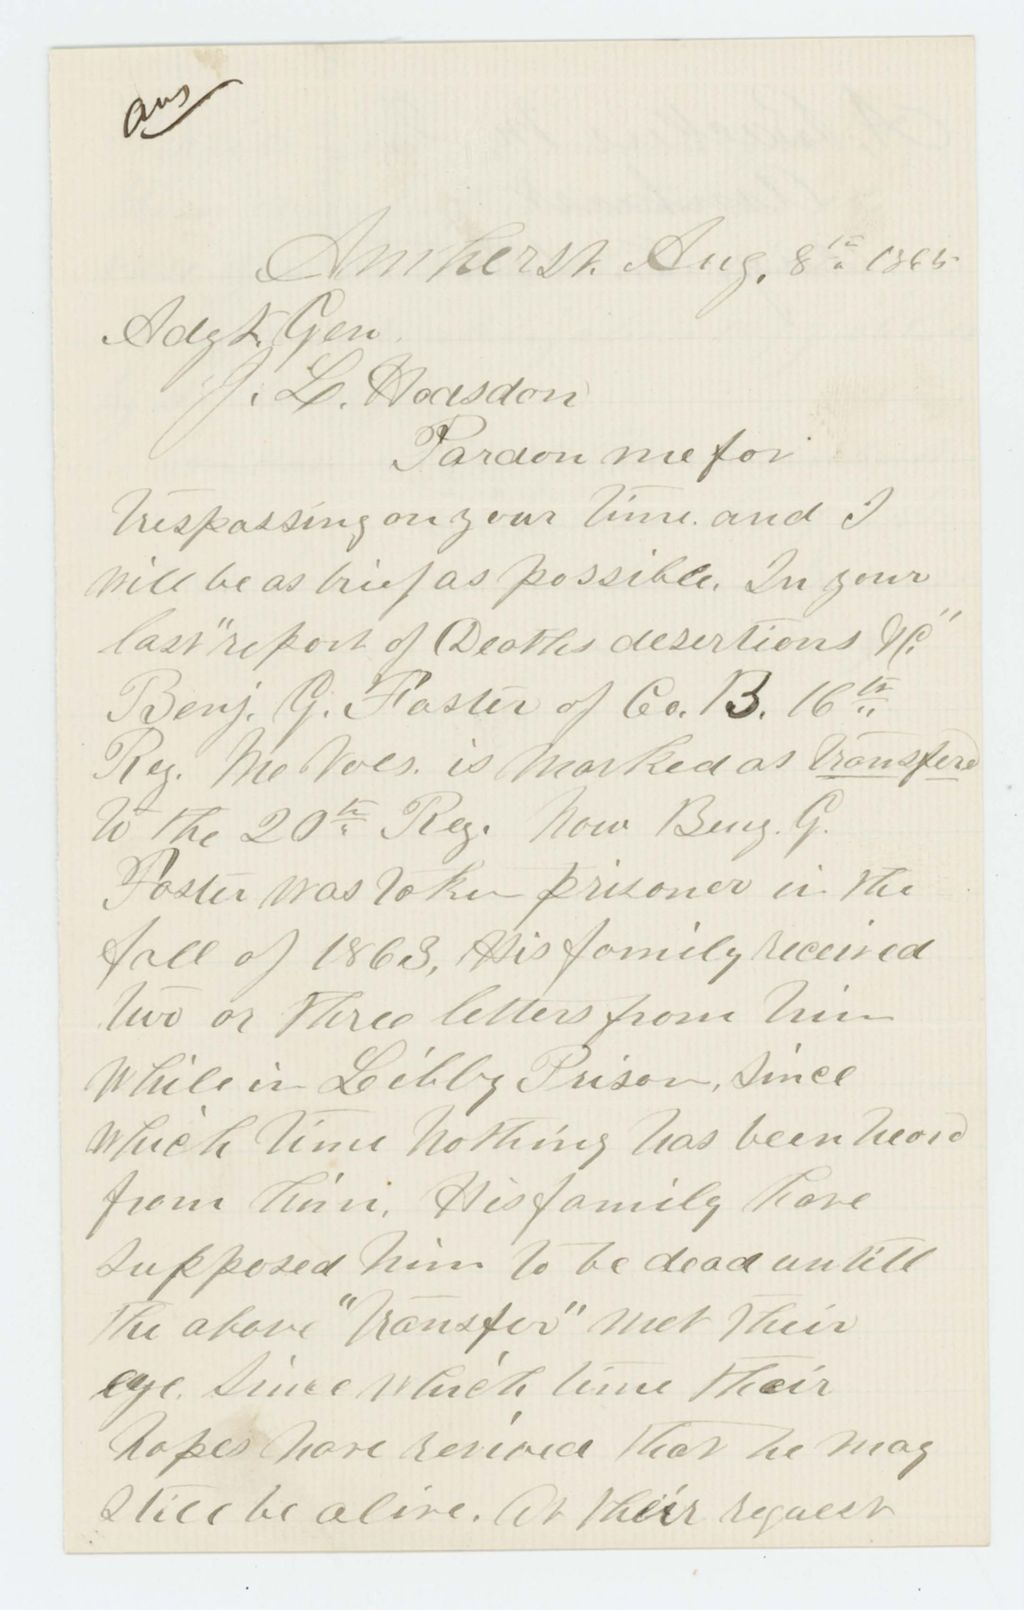 ans
Amherst. Aug. 8th 1865
Adgt. Gen.
J. L. Hodsdon
Pardon me for
trespassing on your time. and I
will be as brief as possible. In your
last "report of Deaths desertions &c."
Benj. G. Foster of Co. B. 16th
Reg. Me Vols. is marked as transfered
to the 20th Reg. Now Benj. G.
Foster was taken prisoner in the
fall of 1863, His family received
two or three letters from him
while in Libby Prison, since
which time nothing has been heard
from him. His family have
supposed him to be dead untill
the above "transfer" met their
eye. Since which time their
hopes have revived that he may
still be alive. At their request